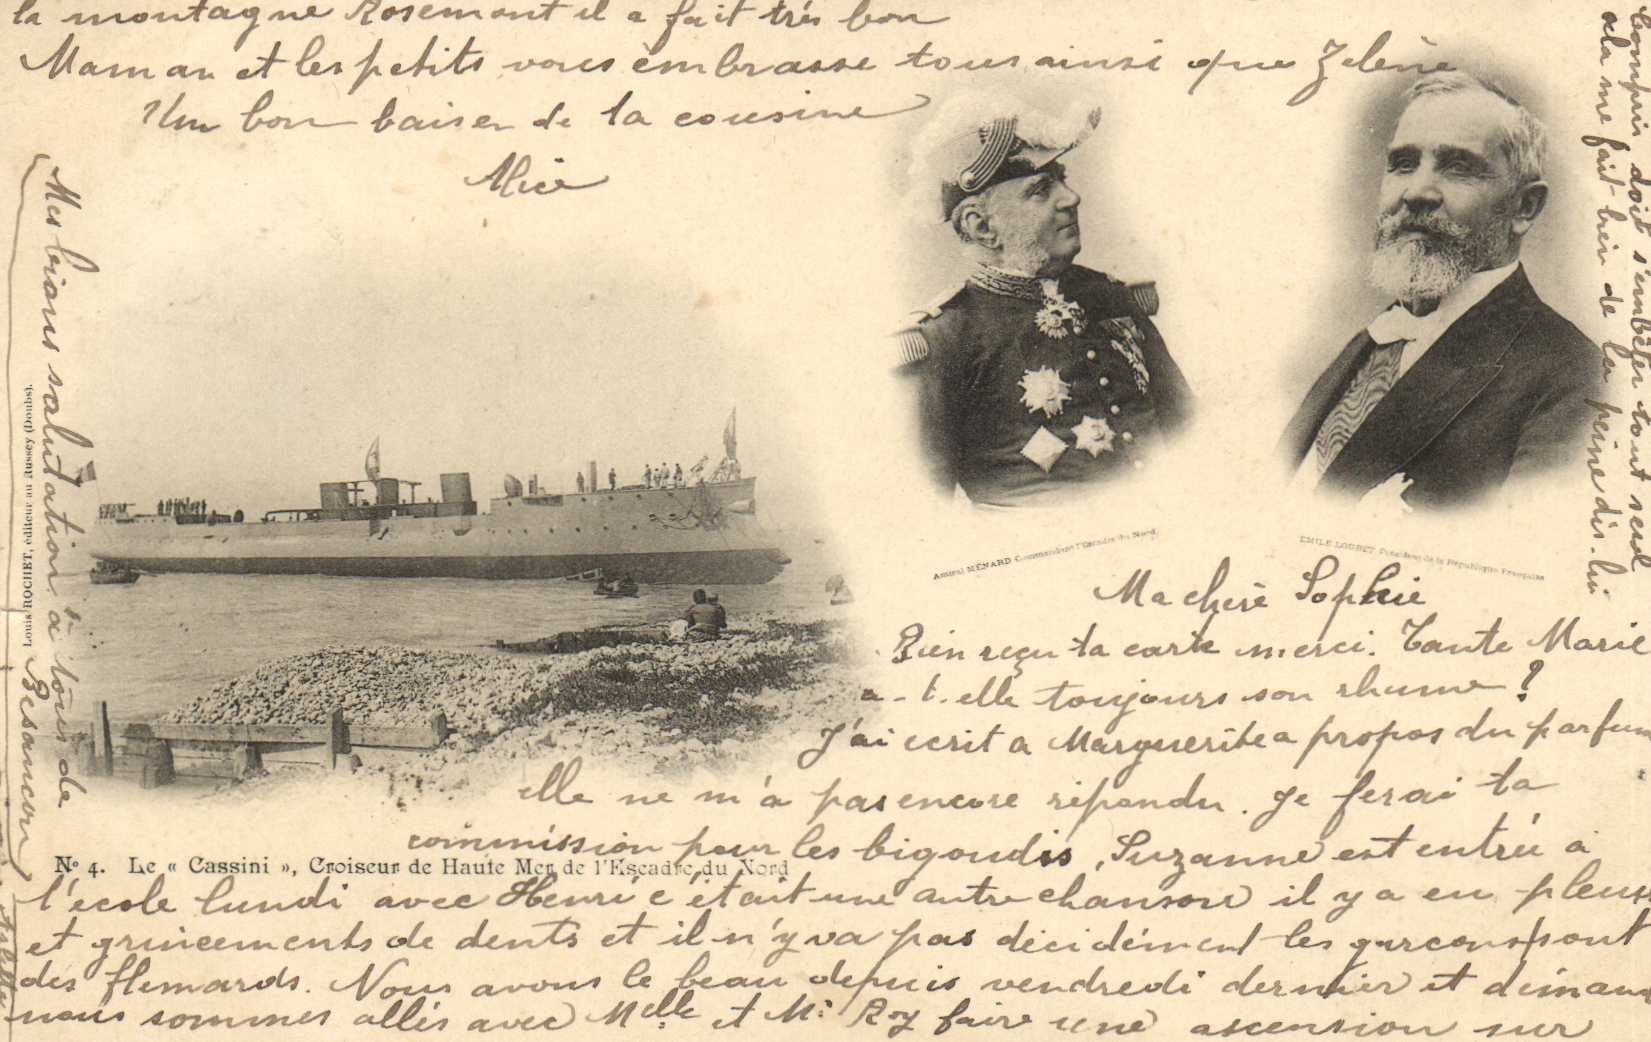 Ma chère Sophie
Bien reçu ta carte merci. Tante Marie
a-t-elle toujours son rhume ?
J'ai ecrit a Marguerite a propos du parfum
elle ne m'a pas encore répondu. Je ferai ta
commission pour les bigoudis, Suzanne est entrée a
l'école lundi avec Henri c'était une autre chanson il y a eu pleurs
et grincements de dents et il n'y va pas décidément les garcons sont
des flemards. Nous avons le beau depuis vendredi dernier et
nous sommes allés avec Melle et Mr Roy faire une ascension sur
la montagne Rosemont il a fait très bon
Maman et les petits vous embrasse tous ainsi que Zelène
Un bon baiser de la cousine
Alice
doit s'embêter tout seul
cela me fait bien de la peine dis-lui
Mes salutation à tous de
Besancon
Louis ROCHET, éditeur au Russey (Doubs).
Amiral MÉNARD Commandant l'Escadre du Nord
EMILE LOUBET Président de la République Française
Nº 4. Le « Cassini », Croiseur de Haute Mer de l'Escadre du Nord